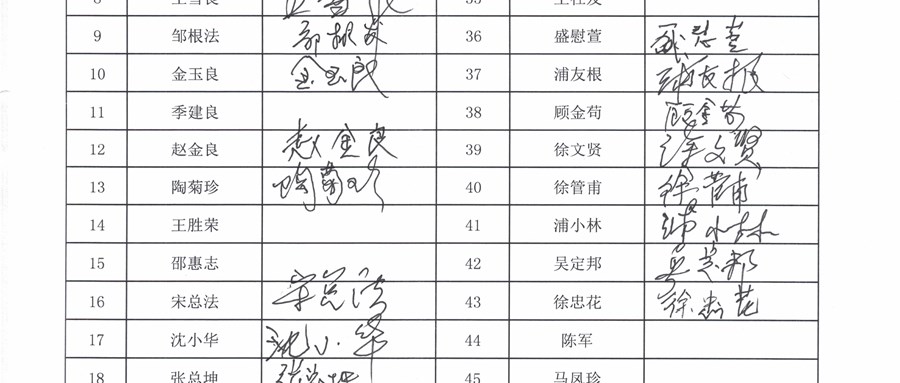 9 邹根法 邹根法 36 盛慰萱 盛慰萱
10 金玉良 金玉良 37 浦友根 浦友根
11 季建良 38 顾金苟 顾金苟
12 赵金良 赵金良 39 徐文贤 徐文贤
13 陶菊珍 陶菊珍 40 徐管甫 徐管甫
14 王胜荣 41 浦小林 浦小林
15 邵惠志 42 吴定邦 吴定邦
16 宋总法 宋总法 43 徐忠花 徐忠花
17 沈小华 沈小华 44 陈军
18 张总坤 张总坤 45 马凤珍